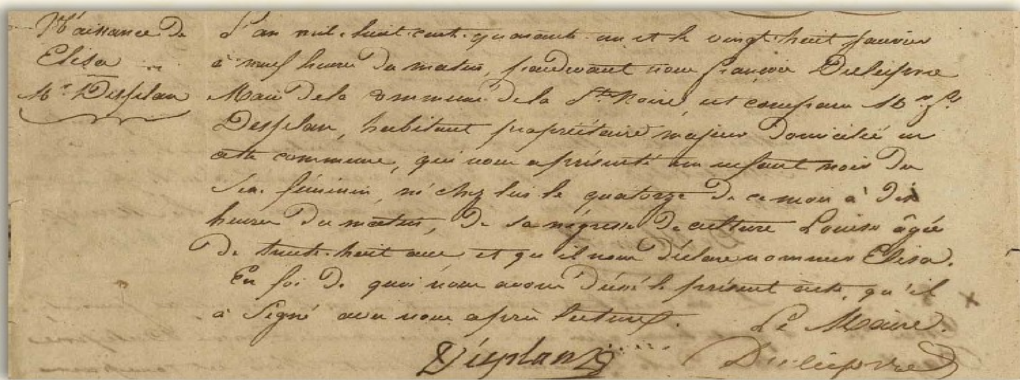 Naissance de
Elisa
Mr. Desplan
L'an mil huit cent quarante un et le vingt huit Janvier
à neuf heures du matin, pardevant nous françois
Maire de la commune de la Rivre. Noire, est comparu Mr.
Desplan, habitant propriétaire majeur domicilié en
cette commune, qui nous a présenté un enfant noir du
Sexe féminin, né chez lui le quatorze de ce mois à dix
heures du matin, de sa négresse de culture Louise âgée
de trente-huit ans et qu'il nous déclare nommer Elisa.
En foi de quoi nous avons dressé le présent acte, qu'il
a Signé avec nous après lecture. Le Maire.
Désplan